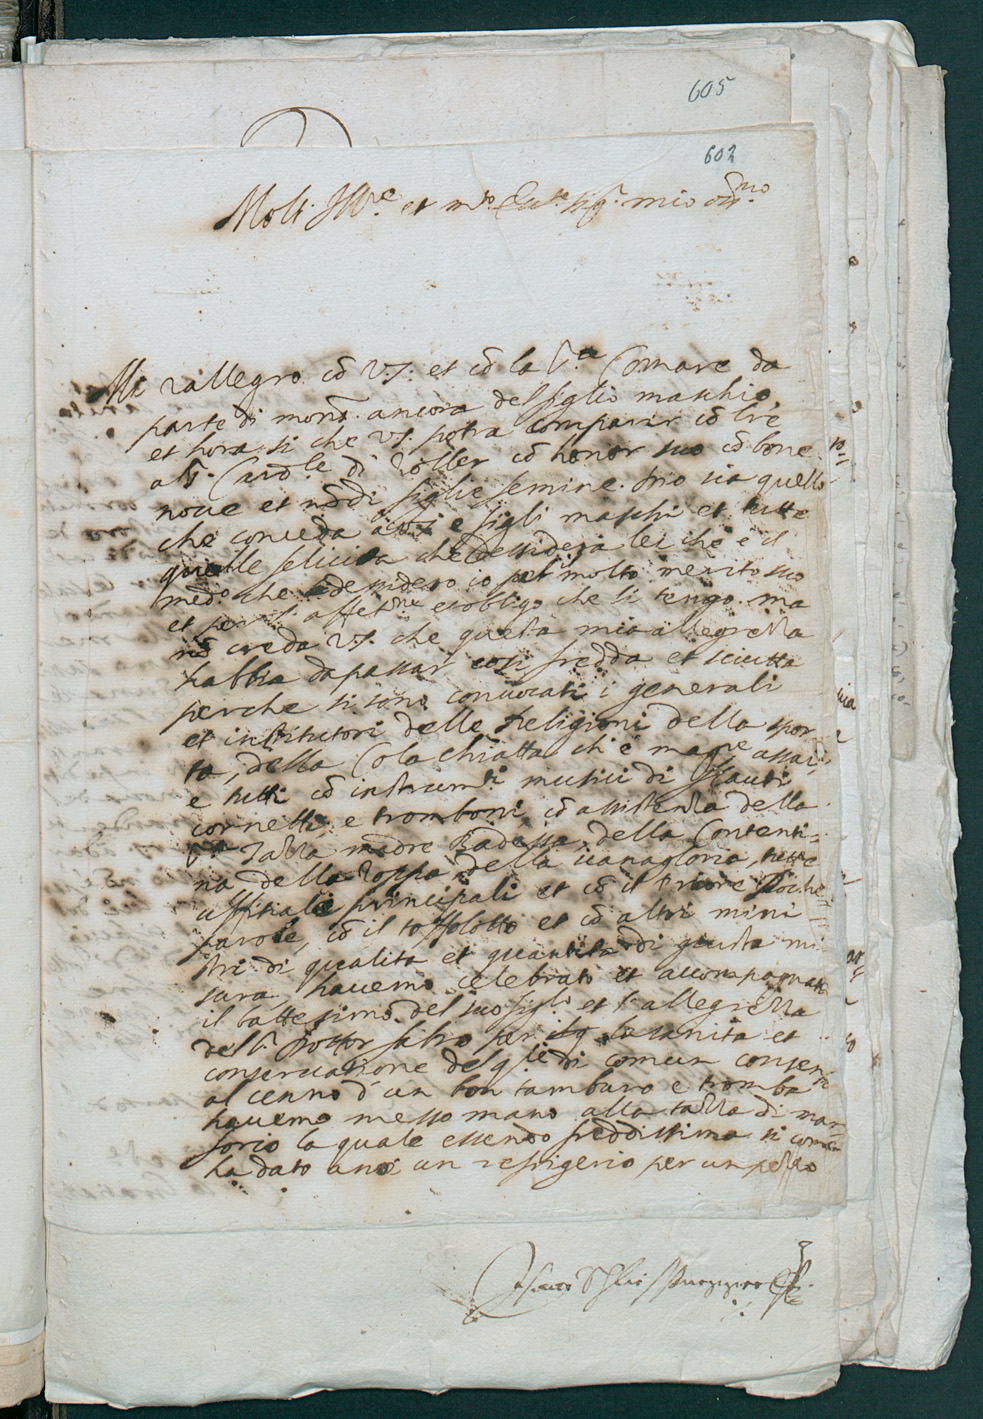 605
602
Molt. Ill.re et m.to Ecc.te sig.r mio oss.mo
Mi rallegro cō V.S. et cō la S.ra Comare da
parte di mons.r ancora del figlio maschio,
et hora si che V.S. potra comparir cō
al S.r di Zoller cō honor suo cō bone
nove et nō di figlie femine. Iddio sia quello
che conceda figli maschi et tutte
quelle felicita che desidera lei che è il
med.o che desidero io pel molto merito suo
et per l'affetne et obligo che li tengo. ma
nō creda V.S. che questa mia allegrezza
habbia da passar cosi fredda et sciutta
perche si sono convocati i generali
et institutori delle Religioni della spor
ta, della Cola chiatta ch'è magre assai
e tutti cō instrum.ti musici di flauti
cornetti e tromboni, cō assistenza della
madre Badessa della Contenti=
na della zoppa della vanagloria, tutte
uffitiale principali et cō il Priore Poche
parole, cō il toffolotto et cō altri mini
stri di qualita et quantita di giusta mi
sura havemo celebrato et accompagnato
il battesimo del suo fig.lo et l'allegrezza
del S. Dottor per la sanita et
conservatione del q.le di comun consen
al cenno d'un bon tamburo e tromba
havemo messo mano alla tazza di mar
sorio la quale essendo freddissima si
ha dato a noi un refrigerio per un pezzo